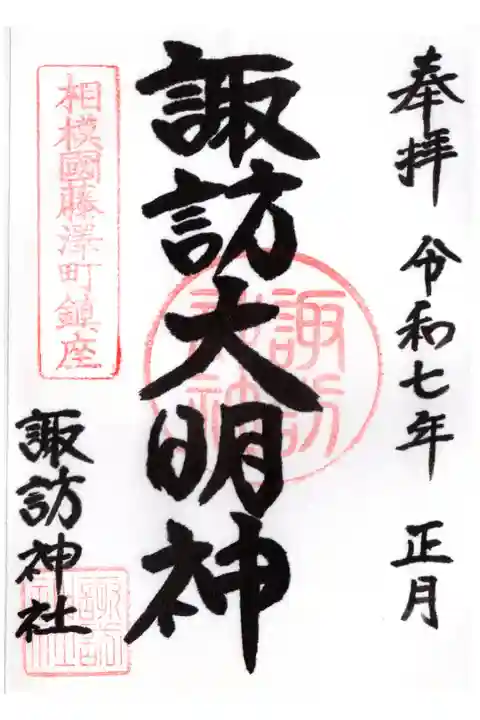 奉拝 令和七年 正月
諏訪大明神
諏訪神社
相模國藤澤町鎮座
諏訪神社
諏訪神社